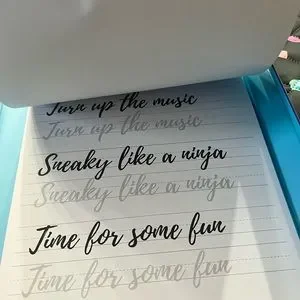 Turn up the music
Turn up the music
Sneaky like a ninja
Sneaky like a ninja
Time for some fun
Time for some fun